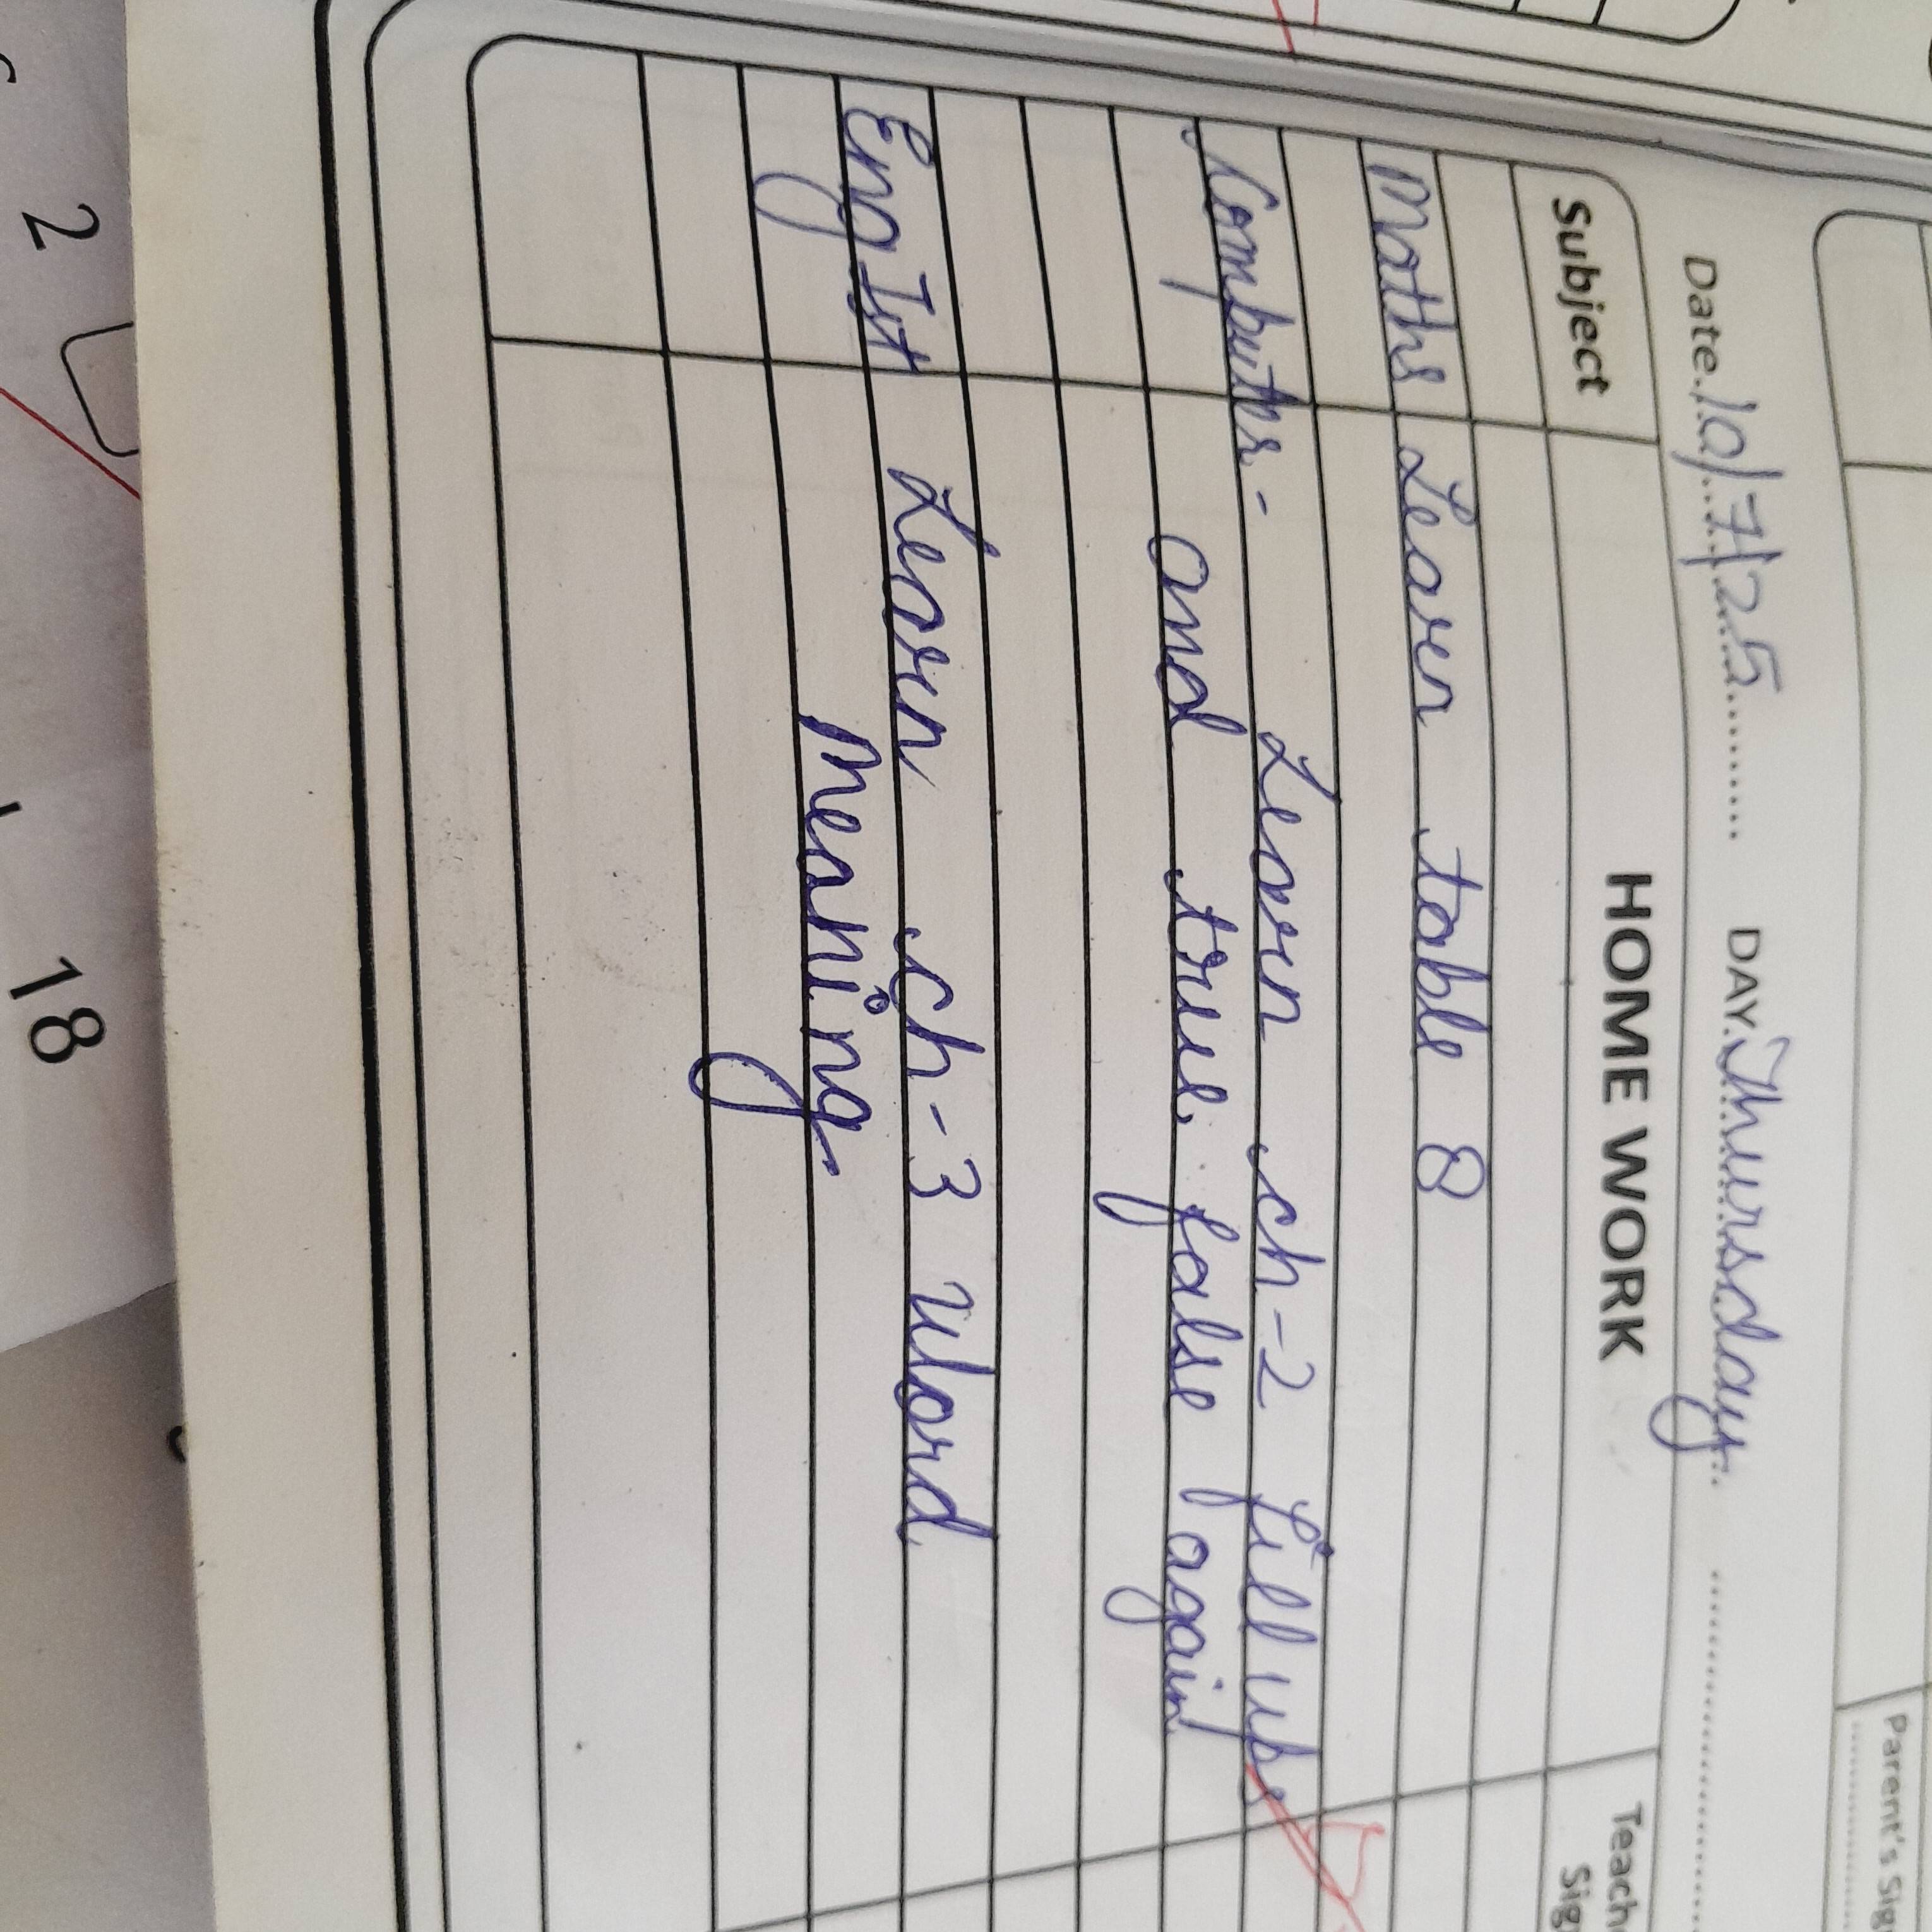 Date.10/7/25.......... DAY.Thursday..
HOME WORK
Subject
Maths Learn table 8
Computer - Learn ch-2 fill ups
and true false again
Eng Ist Learn ch-3 word
Meaning
Parent's Sig
2
18